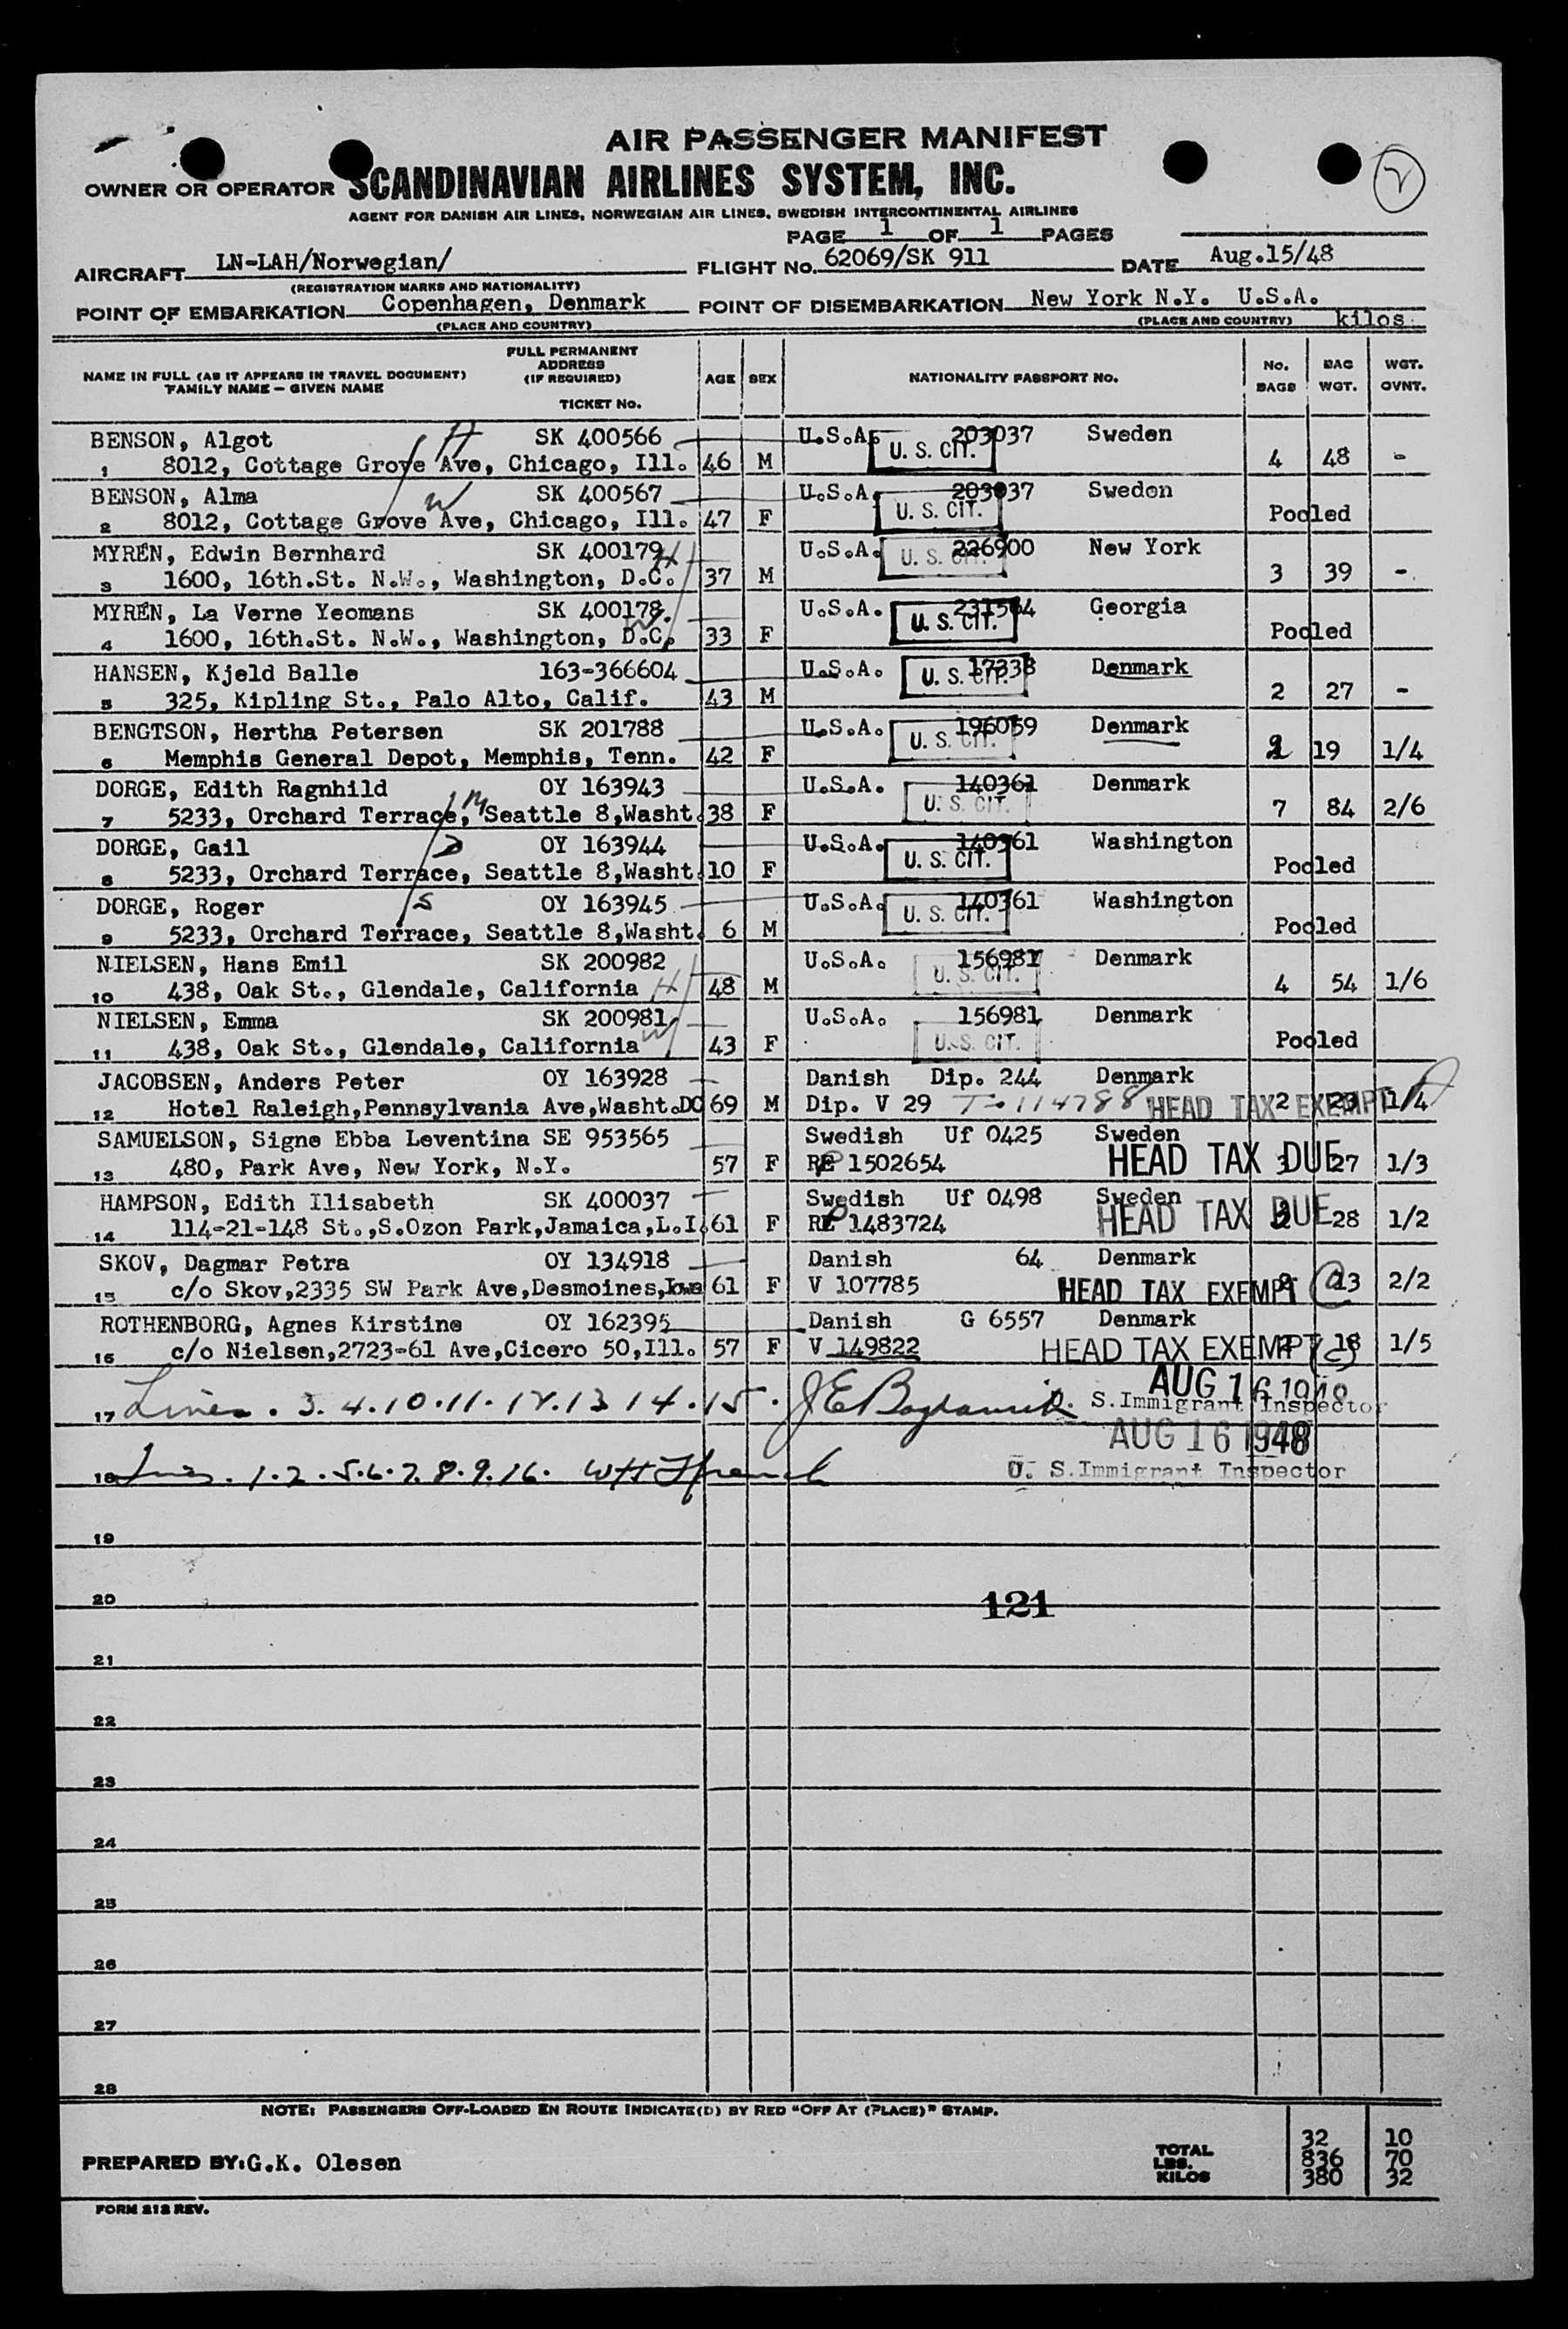 AIR PASSENGER MANIFEST
OWNER OR OPERATOR SCANDINAVIAN AIRLINES SYSTEM, INC.
AGENT FOR DANISH AIR LINES, NORWEGIAN AIR LINES, SWEDISH INTERCONTINENTAL AIRLINES
PAGE 1 OF 1 PAGES
AIRCRAFT LN-LAH/Norwegian/ FLIGHT No. 62069/SK 911 DATE Aug.15/48
(REGISTRATION MARKS AND NATIONALITY)
POINT OF EMBARKATION Copenhagen, Denmark POINT OF DISEMBARKATION New York N.Y. U.S.A.
(PLACE AND COUNTRY) (PLACE AND COUNTRY) kilos
NAME IN FULL (AS IT APPEARS IN TRAVEL DOCUMENT) FAMILY NAME - GIVEN NAME FULL PERMANENT ADDRESS (IF REQUIRED) TICKET No. AGE SEX NATIONALITY PASSPORT NO. No. BAGS BAG WGT. WGT. OVNT.
BENSON, Algot H SK 400566 U.S.A. 203037 Sweden
1 8012, Cottage Grove Ave, Chicago, Ill. 46 M U. S. CIT. 4 48 -
BENSON, Alma W SK 400567 U.S.A. 203037 Sweden
2 8012, Cottage Grove Ave, Chicago, Ill. 47 F U. S. CIT. Pooled
MYRÉN, Edwin Bernhard SK 400179 H U.S.A. 226900 New York
3 1600, 16th.St. N.W., Washington, D.C. 37 M U. S. CIT. 3 39 -
MYRÉN, La Verne Yeomans SK 400178. W U.S.A. 231564 Georgia
4 1600, 16th.St. N.W., Washington, D.C. 33 F U. S. CIT. Pooled
HANSEN, Kjeld Balle 163-366604 U.S.A. 17338 Denmark
5 325, Kipling St., Palo Alto, Calif. 43 M U. S. CIT. 2 27 -
BENGTSON, Hertha Petersen SK 201788 U.S.A. 196059 Denmark
6 Memphis General Depot, Memphis, Tenn. 42 F U. S. CIT. 19 1/4
DORGE, Edith Ragnhild M OY 163943 U.S.A. 140361 Denmark
7 5233, Orchard Terrace, Seattle 8,Washt. 38 F U. S. CIT. 7 84 2/6
DORGE, Gail D OY 163944 U.S.A. 140361 Washington
8 5233, Orchard Terrace, Seattle 8,Washt. 10 F U. S. CIT. Pooled
DORGE, Roger S OY 163945 U.S.A. 140361 Washington
9 5233, Orchard Terrace, Seattle 8,Washt. 6 M U. S. CIT. Pooled
NIELSEN, Hans Emil SK 200982 U.S.A. 156981 Denmark
10 438, Oak St., Glendale, California H 48 M U. S. CIT. 4 54 1/6
NIELSEN, Emma SK 200981 U.S.A. 156981 Denmark
11 438, Oak St., Glendale, California W 43 F U. S. CIT. Pooled
JACOBSEN, Anders Peter OY 163928 Danish Dip. 244 Denmark
12 Hotel Raleigh,Pennsylvania Ave,Washt.DC 69 M Dip. V 29 T-114788 HEAD TAX EXEMPT 2 23 1/4
SAMUELSON, Signe Ebba Leventina SE 953565 Swedish Uf 0425 Sweden
13 480, Park Ave, New York, N.Y. 57 F RP 1502654 HEAD TAX DUE 3 27 1/3
HAMPSON, Edith Ilisabeth SK 400037 Swedish Uf 0498 Sweden
14 114-21-148 St.,S.Ozon Park,Jamaica,L.I. 61 F RP 1483724 HEAD TAX DUE 2 28 1/2
SKOV, Dagmar Petra OY 134918 Danish 64 Denmark
15 c/o Skov,2335 SW Park Ave,Desmoines,Iowa 61 F V 107785 HEAD TAX EXEMPT 2 13 2/2
ROTHENBORG, Agnes Kirstine OY 162395 Danish G 6557 Denmark
16 c/o Nielsen,2723-61 Ave,Cicero 50,Ill. 57 F V 149822 HEAD TAX EXEMPT 2 18 1/5
AUG 16 1948
17 Lines. 3. 4. 10. 11. 12. 13 14. 15. U. S. Immigrant Inspector
AUG 16 1948
18 Lines. 1. 2. 5. 6. 7. 8. 9. 16. U. S. Immigrant Inspector
19
20 121
21
22
23
24
25
26
27
28
NOTE: PASSENGERS OFF-LOADED EN ROUTE INDICATE(D) BY RED "OFF AT (PLACE)" STAMP.
PREPARED BY: G.K. Olesen
TOTAL 32 10
LBS. 836 70
KILOS 380 32
FORM 212 REV.